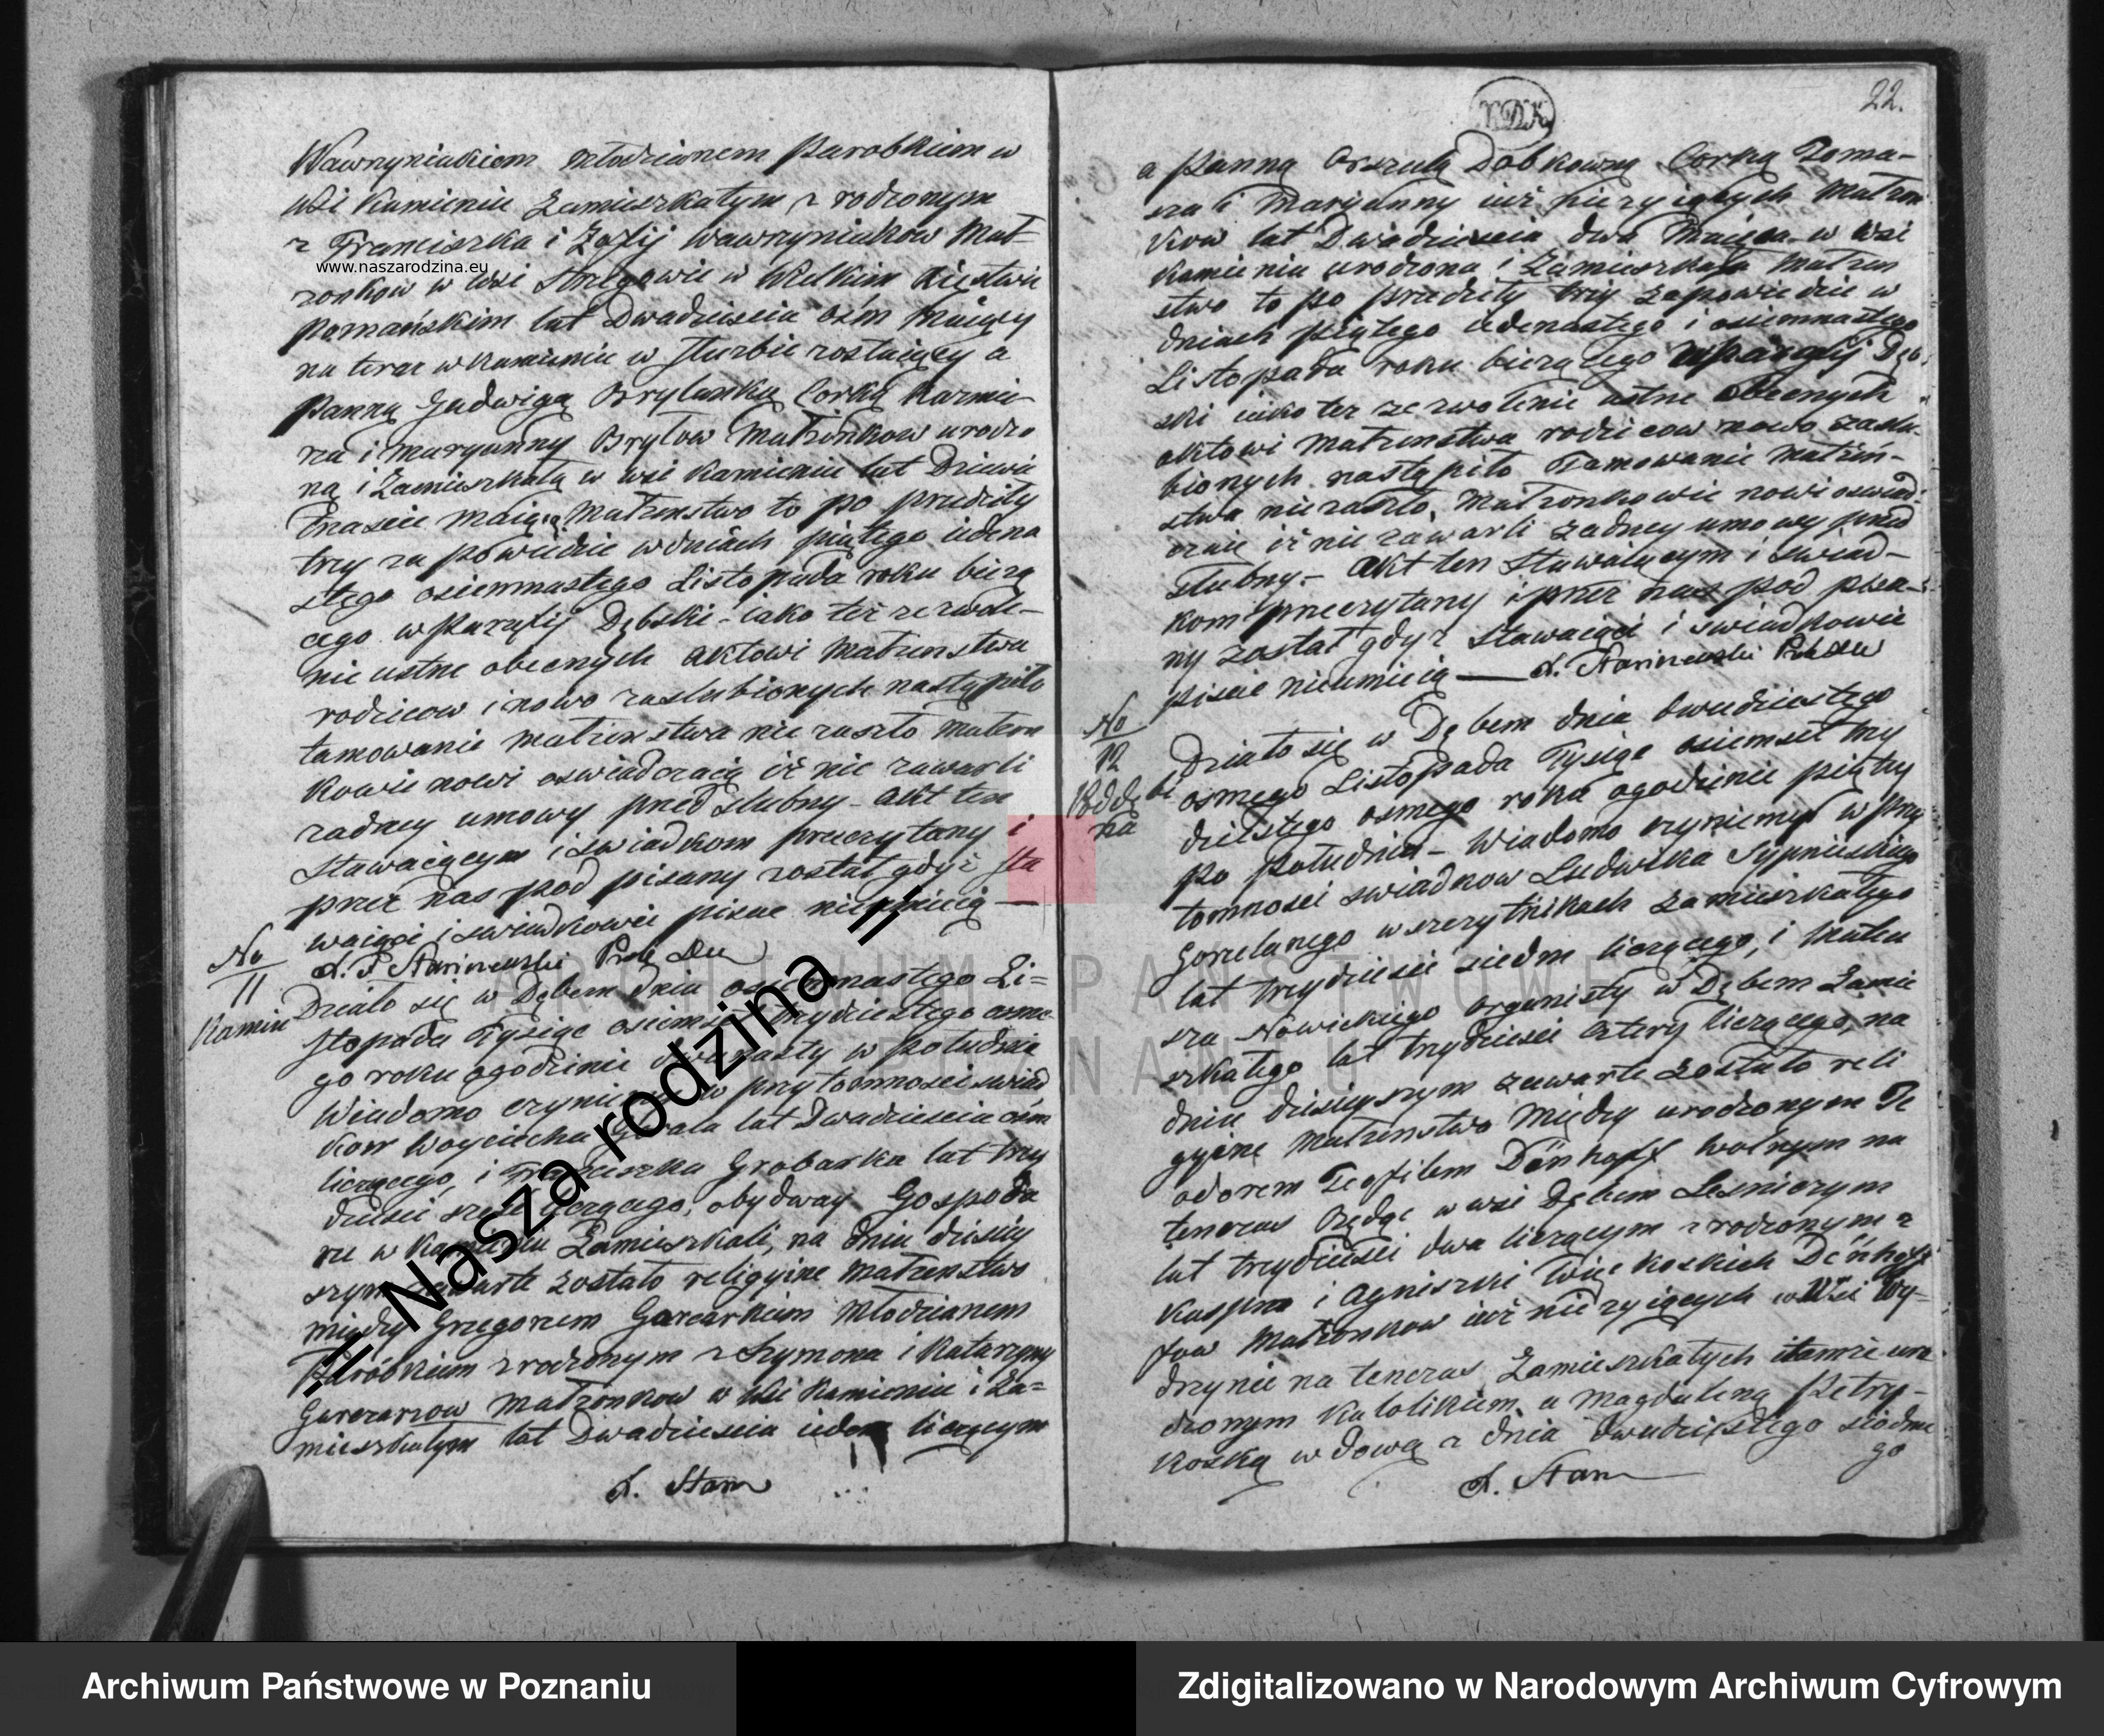 Wawryniakiem Młodzianem Parobkiem w
Wsi Kamieniu Zamieszkałym z rodzonym
z Franciszka i Zofij Wawryniaków Mał=
www.naszarodzina.eu
zonków w Wsi w Wielkim Xięstwie
Poznańskim lat Dwadzieścia ośm Maiący
na teraz w Kamieniu w służbie zostaiący a
Panną Jadwigą Brylanką Corką Kazmie-
rza i Maryanny Brylow Małżonkow urodzo
ną i Zamieszkałą w wsi Kamieniu lat Dziewię
tnascie maiącą Małżenstwo to po przedziły
trzy za powiedzie w dniach piątego iedena
stego osiemnastego Listopada roku bierzą
cego w Parafij Dębski - iako też ze zwole-
nie ustne obecnych aktowi Małżenstwa
rodzicow i nowo zaslubionych nastąpiło
tamowanie małżenstwa nie zaszło Małżon
kowie nowi oswiadczaią iż nie zawarli
żadney umowy przed slubny - Akt ten
Stawaiącym i swiadkom przeczytany i
przez nas pod pisany został gdyż Sta
waiący i swiadkowie pisac nieumieią —
No
11
Kamień
Działo się w Dębem dnia osiemnastego Li=
stopada Tysiąc osiemset trzydziestego osme-
go roku ogodzinie dwunasty w południe
Wiadomo czyniemy w przytomnosci swiad
kow Woyciecha Gorala lat Dwadziescia ośm
liczącego, i Franciszka Grobarka lat trzy
dziesci szesc liczącego, obydway Gospoda
rze w Kamieniu Zamieszkali, na dniu dzisiey
szym zawarte zostało religijne Małżenstwo
między Grzegorzem Garcarkiem Młodzianem
Parobkiem zrodzonym z Szymona i Katarzyny
Garczarzow Małżonkow w Wsi Kamieniu i Za=
mieszkałym lat Dwadziescia ieden liczącym
X. Stam
22.
a Panną Orszulą Dobkowną Corką Toma-
sza i Maryanny iuż nieżyiących Małżon
kow lat Dwadziescia dwa Maiąca w Wsi
Kamieniu urodzona i Zamieszkała Małżen
stwo to po przedziły trzy zapowiedzie w
dniach piątego iedenastego i osiemnastego
Listopada roku bierzącego w parafij Dęb
ski iako też ze zwolenie ustne obecnych
aktowi Małżenstwa rodzicow nowo zaslu-
bionych nastąpiło Tamowanie Małżeń-
stwa niezaszło, Małzonkowie nowi oswiad-
czaią iż nie zawarli żadney umowy przed
slubny - Akt ten Stawaiącym i swiad-
kom przeczytany i przez nas pod pisa-
ny został gdyż Stawaiący i swiadkowie
pisac nieumieią —
No
12
Działo się w Dębem dnia dwudziestego
osmego Listopada Tysiąc osiemset trzy
dziestego osmego roku ogodzinie piąty
po południu - Wiadomo czyniemy w przy
tomnosci swiadkow Ludwika Sypniewskiego
Gorzelanego w Szczytnikach Zamieszkałego
lat trzydziesci siedm liczącego, i Mateu
sza Nowickiego organisty w Dębem Zamie
szkałego lat trzydziesci cztery liczącego, na
dniu dzisieyszym zawarte Zostało reli
gyine Małżenstwo Między urodzonym Te
odorem Teofilem Dönhoff wolnym na
tenczas Będąc w wsi Dębem Lesniczym
lat trzydziesci dwa liczącym zrodzonym z
Kaspra i Agnieszki Dönhoff
fow Małżonkow iuż nieżyiących w Wsi Wy-
drzynie na tenczas Zamieszkałych itamże uro
dzonym Katolikiem, a Magdaleną Petry-
koską wdową z dnia dwudziestego siodme
go
X. Stam
ARCHIWUM PAŃSTWOWE
W POZNANIU
= Nasza rodzina =
Archiwum Państwowe w Poznaniu
Zdigitalizowano w Narodowym Archiwum Cyfrowym